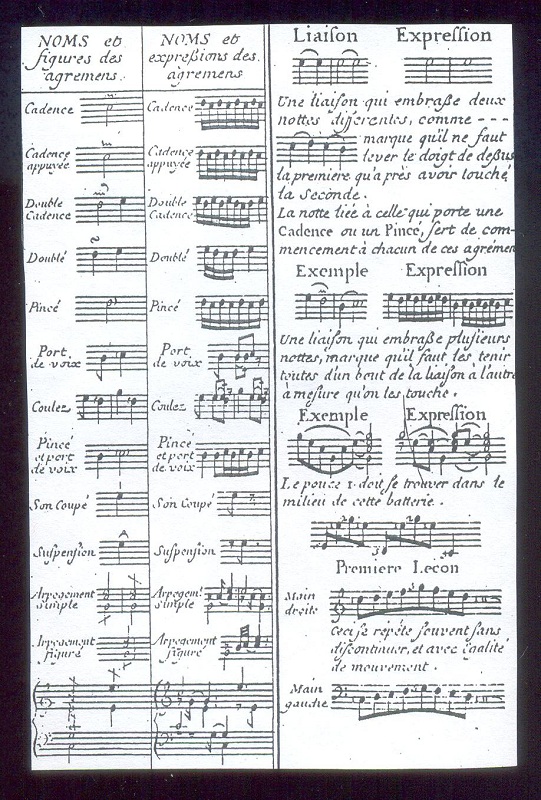 NOMS et
figures des
agremens.
Cadence
Cadence
appuyée
Double
Cadence
Doublé
Pincé
Port
de voix
Coulez
Pincé
et port
de voix
Son Coupé
Suspension
Arpegement
simple
Arpegement
figuré
NOMS et
expreßions des
agremens
Cadence
Cadence
appuyée
Double
Cadence
Doublé
Pincé
Port
de voix
Coulez
Pincé
et port
de voix
Son Coupé
Suspension
Arpegemt
simple
Arpegement
figuré
Liaison Expression
Une liaison qui embraße deux
nottes differentes, comme - - -
marque qu'il ne faut
lever le doigt de deßus
la premiere qu'a près avoir touché
la Seconde.
La notte liée à celle qui porte une
Cadence ou un Pincé, sert de com-
mencement à chacun de ces agrémen
Exemple Expression
Une liaison qui embraße plusieurs
nottes, marque qu'il faut les tenir
toutes d'un bout de la liaison à l'autre
à mesure qu'on les touche.
Exemple Expression
Le pouce 1. doit se trouver dans le
milieu de cette batterie.
Premiere Lecon
Main
droite
Ceci se répéte souvent sans
discontinuer, et avec égalité
de mouvement.
Main
gauche